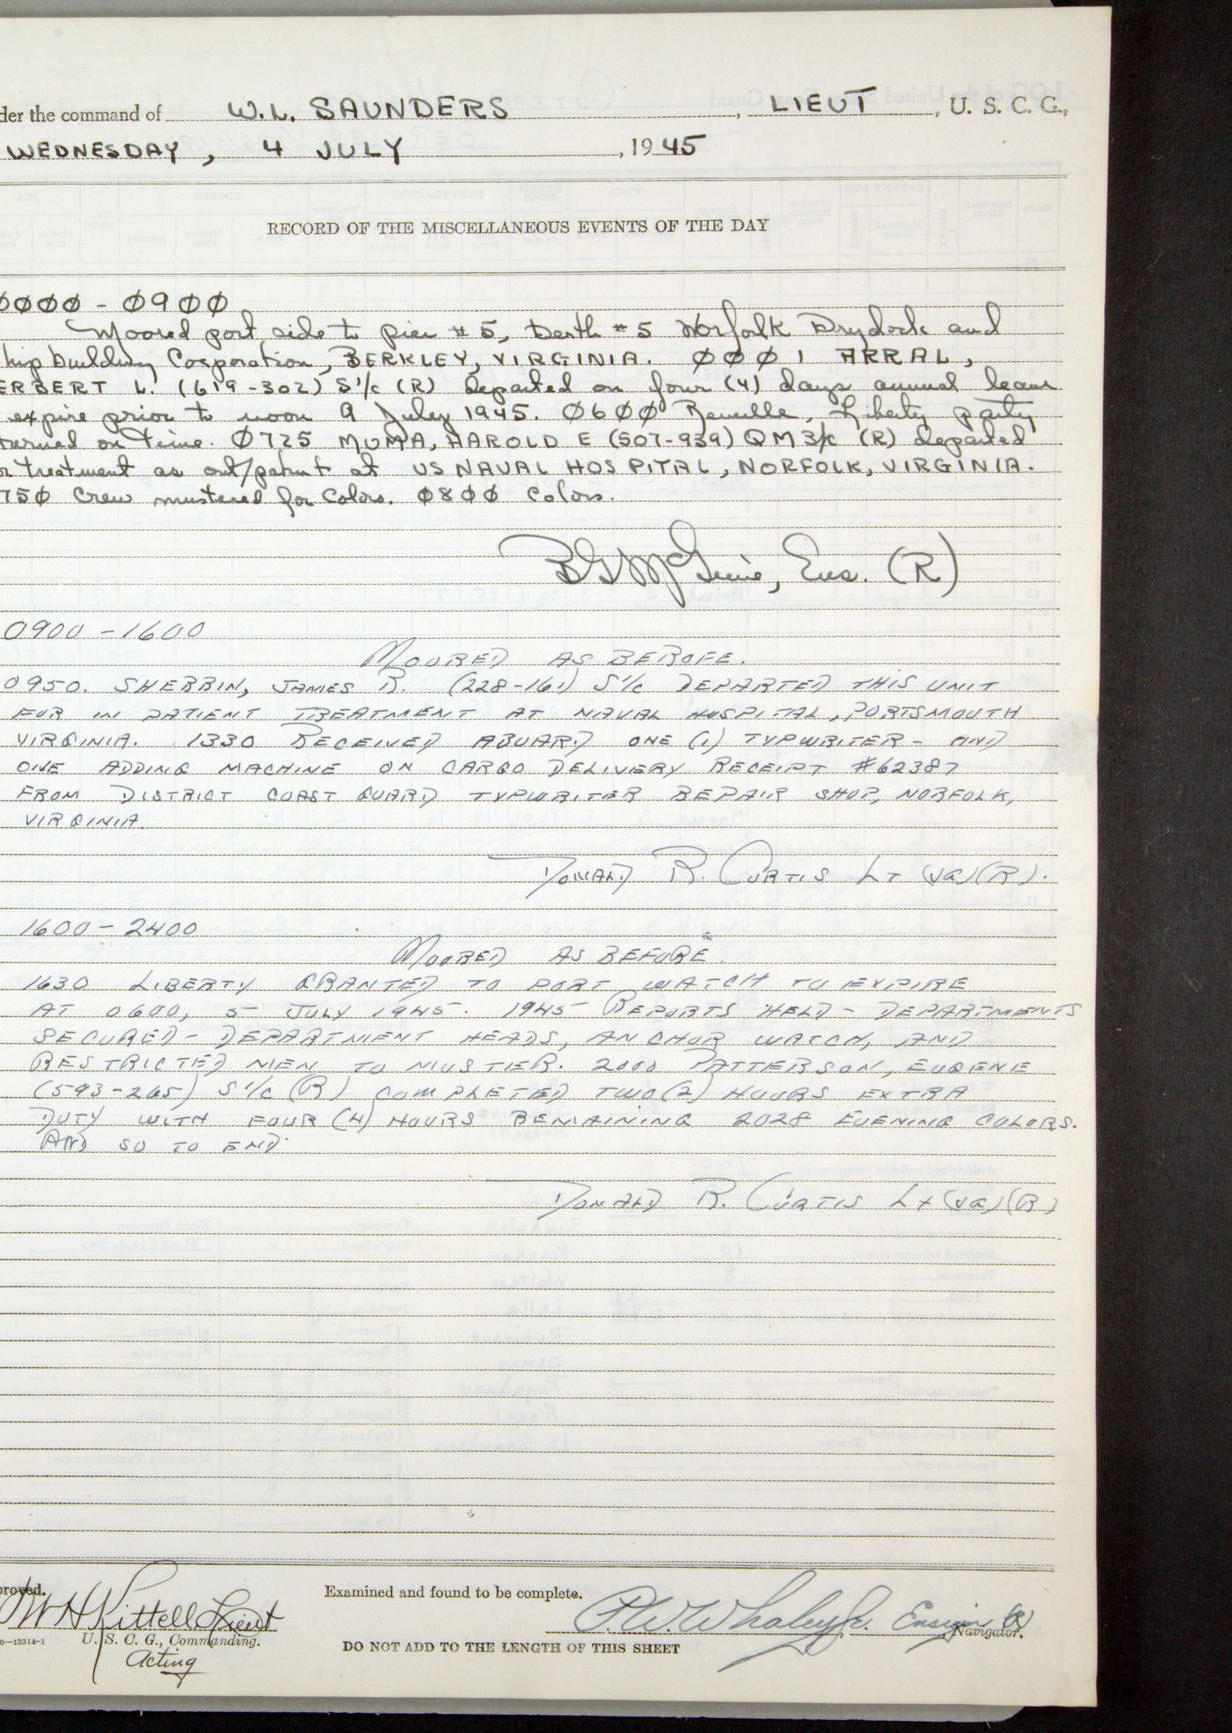 der the command of W.L. SAUNDERS, LIEUT, U. S. C. G.,
WEDNESDAY, 4 JULY, 1945
RECORD OF THE MISCELLANEOUS EVENTS OF THE DAY
0000 - 0900
Moored port side to pier #5, berth #5 Norfolk Drydock and
hip building Corporation, BERKLEY, VIRGINIA. 0001 ARRAL,
ERBERT L. (619-302) S1/c (R) departed on four (4) days annual leave
expire prior to noon 9 July 1945. 0600 Reveille, Liberty party
turned on time. 0725 MUMA, HAROLD E (507-939) QM3/c (R) departed
r treatment as out/patient at US NAVAL HOSPITAL, NORFOLK, VIRGINIA.
750 Crew mustered for Colors. 0800 Colors.
Ens. (R)
0900-1600
MOORED AS BEROFE.
0950. SHERRIN, JAMES R. (228-161) S1/c DEPARTED THIS UNIT
FOR IN PATIENT TREATMENT AT NAVAL HOSPITAL, PORTSMOUTH
VIRGINIA. 1330 RECEIVED ABOARD ONE (1) TYPWRITER - AND
ONE ADDING MACHINE ON CARGO DELIVERY RECEIPT #62387
FROM DISTRICT COAST GUARD TYPWRITER REPAIR SHOP, NORFOLK,
VIRGINIA.
DONALD R. CURTIS LT (JG)(R).
1600-2400
MOORED AS BEFORE.
1630 LIBERTY GRANTED TO PORT WATCH TO EXPIRE
AT 0600, 5 JULY 1945. 1945 REPORTS HELD - DEPARTMENTS
SECURED - DEPARTMENT HEADS, ANCHOR WATCH, AND
RESTRICTED MEN TO MUSTER. 2000 PATTERSON, EUGENE
(593-265) S1/c (R) COMPLETED TWO (2) HOURS EXTRA
DUTY WITH FOUR (4) HOURS REMAINING 2028 EVENING COLORS.
AND SO TO END.
DONALD R. CURTIS Lt (JG)(R)
proved.
W H Kittell Lieut
6-13314-1 U. S. C. G., Commanding.
Acting
Examined and found to be complete.
P.W. Whaley Jr. Ensign (R), Navigator.
DO NOT ADD TO THE LENGTH OF THIS SHEET